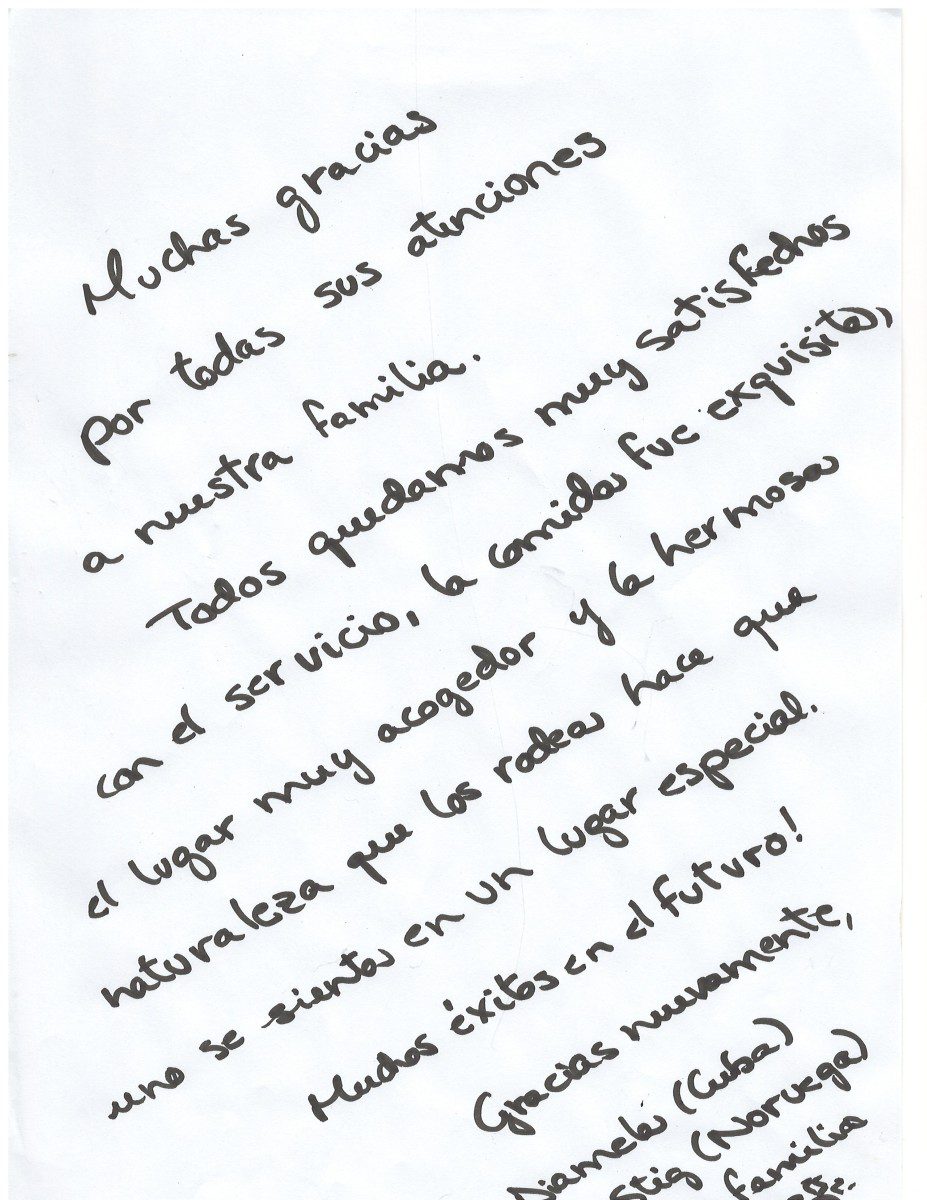 Muchas gracias
por todas sus atenciones
a nuestra familia.
Todos quedamos muy satisfechos
con el servicio, la comida fue exquisita,
el lugar muy acogedor y la hermosa
naturaleza que los rodea hace que
uno se sienta en un lugar especial.
Muchos éxitos en el futuro!
Gracias nuevamente,
Diamela (Cuba)
Stig (Noruega)
familia